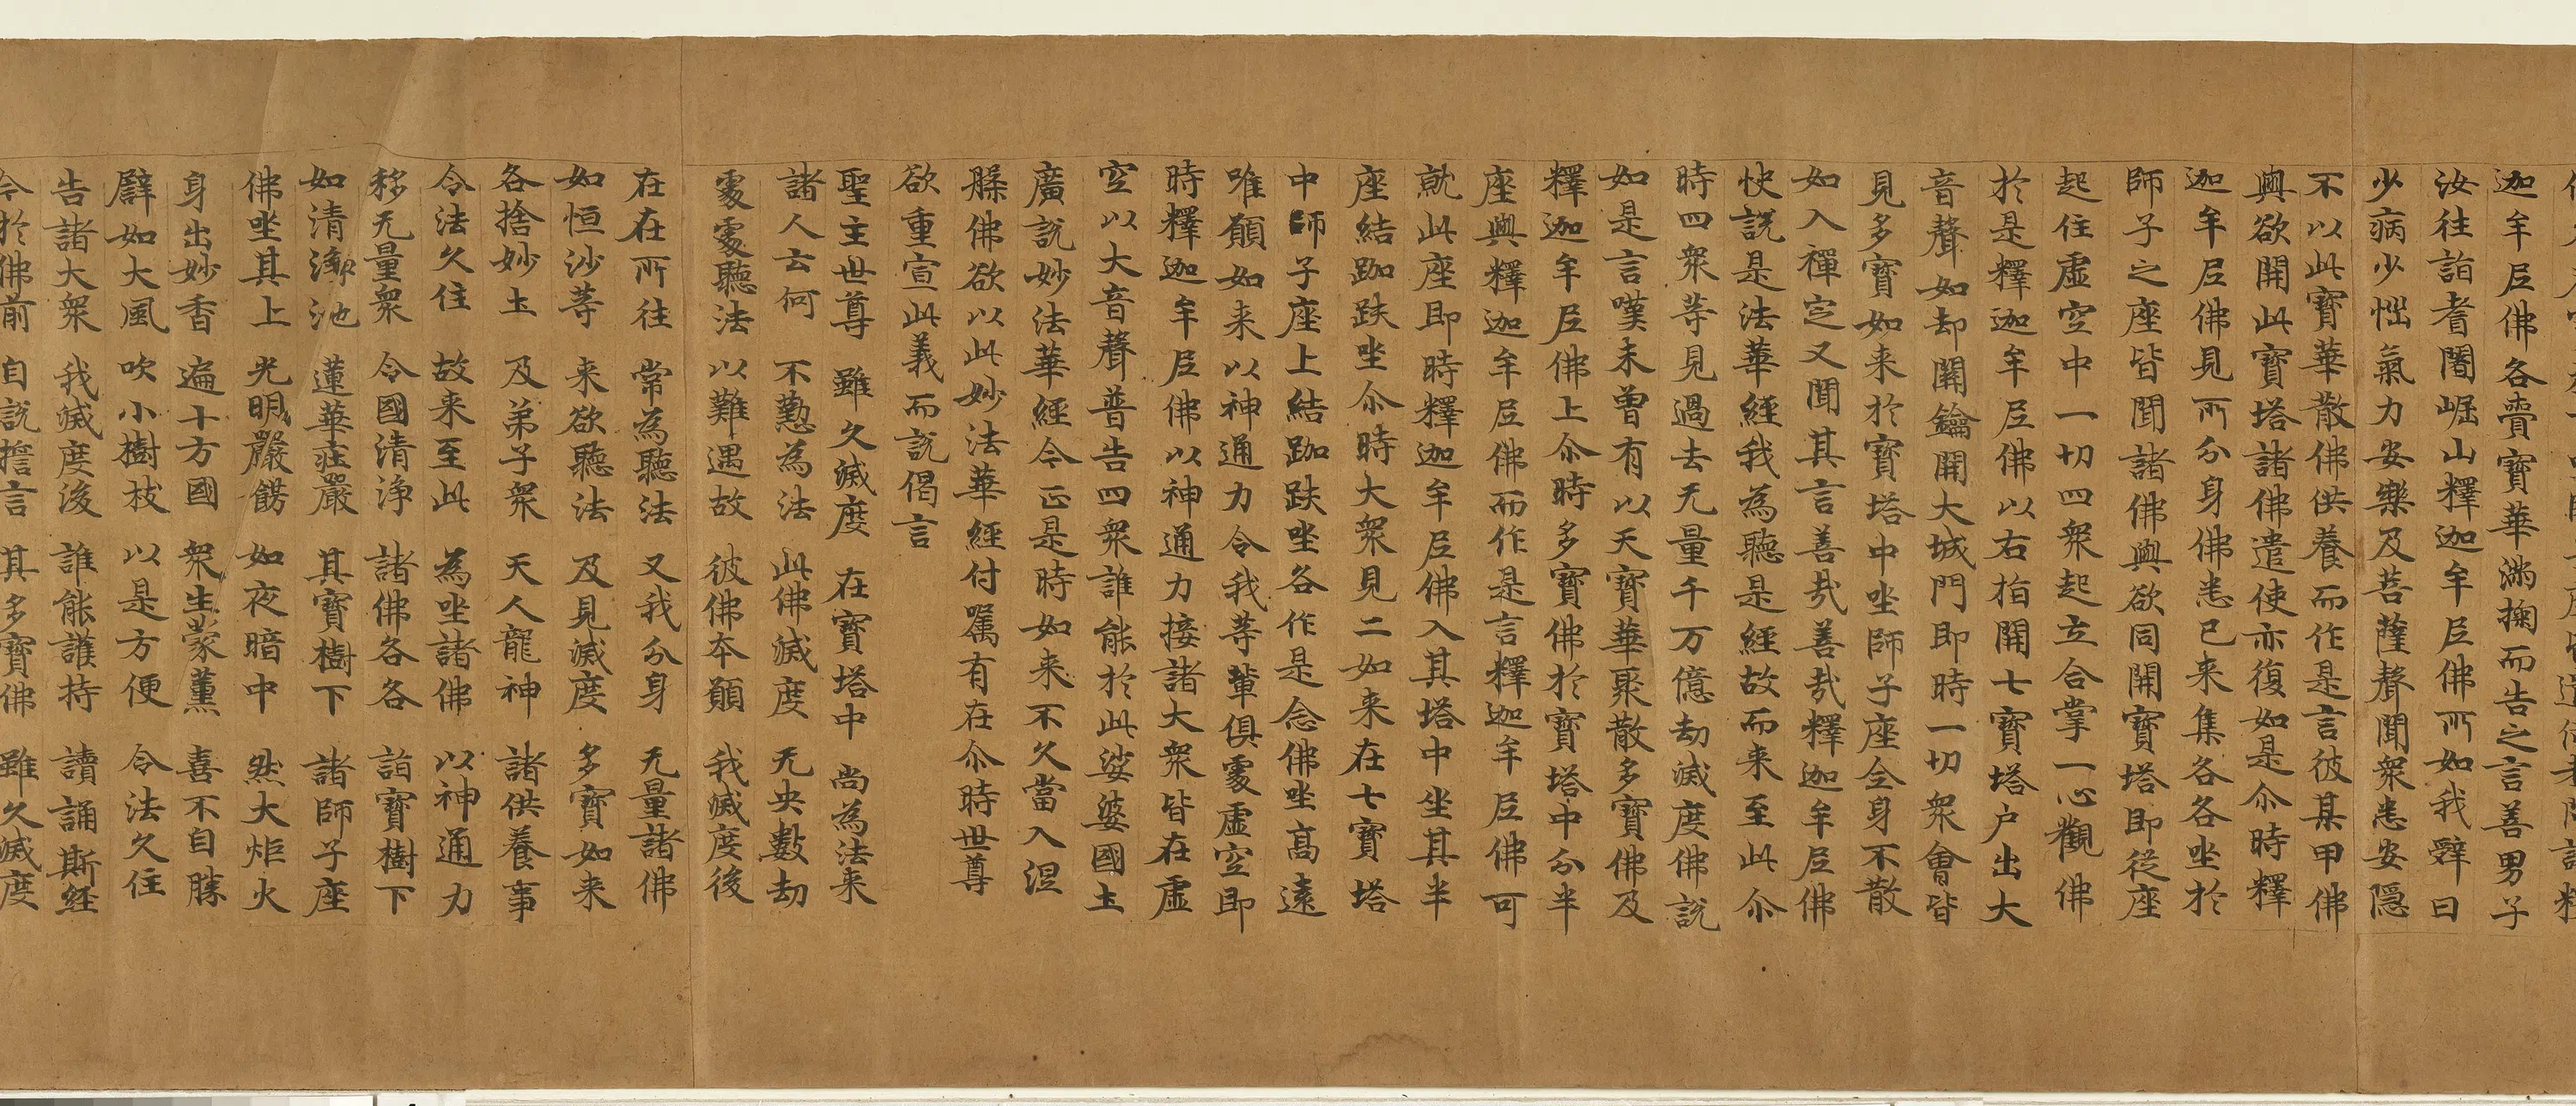 迦牟尼佛各賷寶華滿掬而告之言善男子
汝往詣耆闍崛山釋迦牟尼佛所如我辝曰
少病少惱氣力安樂及菩薩聲聞衆悉安隱
不以此寶華散佛供養而作是言彼某甲佛
與欲開此寶塔諸佛遣使亦復如是尒時釋
迦牟尼佛見所分身佛悉已来集各各坐於
師子之座皆聞諸佛與欲同開寶塔即從座
起住虛空中一切四衆起立合掌一心觀佛
於是釋迦牟尼佛以右指開七寶塔户出大
音聲如却關鑰開大城門即時一切衆會皆
見多寶如来於寶塔中坐師子座全身不散
如入禪定又聞其言善哉善哉釋迦牟尼佛
快說是法華經我為聽是經故而来至此尒
時四衆等見過去无量千万億劫滅度佛說
如是言嘆未曾有以天寶華聚散多寶佛及
釋迦牟尼佛上尒時多寶佛於寶塔中分半
座與釋迦牟尼佛而作是言釋迦牟尼佛可
就此座即時釋迦牟尼佛入其塔中坐其半
座結跏趺坐尒時大衆見二如来在七寶塔
中師子座上結跏趺坐各作是念佛坐高遠
唯願如来以神通力令我等輩俱處虛空即
時釋迦牟尼佛以神通力接諸大衆皆在虛
空以大音聲普告四衆誰能於此娑婆國土
廣說妙法華經今正是時如来不久當入涅
槃佛欲以此妙法華經付囑有在尒時世尊
欲重宣此義而說偈言
聖主世尊 雖久滅度 在寶塔中 尚為法来
諸人云何 不懃為法 此佛滅度 无央數劫
處處聽法 以難遇故 彼佛本願 我滅度後
在在所往 常為聽法 又我分身 无量諸佛
如恒沙等 来欲聽法 及見滅度 多寶如来
各捨妙土 及弟子衆 天人龍神 諸供養事
令法久住 故来至此 為坐諸佛 以神通力
移无量衆 令國清淨 諸佛各各 詣寶樹下
如清淨池 蓮華莊嚴 其寶樹下 諸師子座
佛坐其上 光明嚴餝 如夜暗中 然大炬火
身出妙香 遍十方國 衆生蒙薰 喜不自勝
譬如大風 吹小樹枝 以是方便 令法久住
告諸大衆 我滅度後 誰能護持 讀誦斯經
今於佛前 自說誓言 其多寶佛 雖久滅度